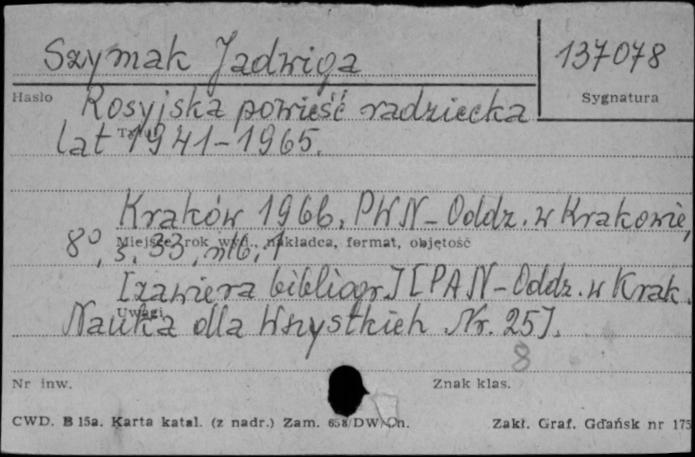 Szymak Jadwiga
137078
Hasło
Sygnatura
Rosyjska powieść radziecka
Tytuł
lat 1941-1965.
Kraków 1966, PWN-Oddz. w Krakowie,
Miejsce, rok wyd., nakładca, format, objętość
8°, s. 33, nlb, 1
[zawiera bibliogr.] [PAN-Oddz. w Krak.
Uwagi
Nauka dla Wszystkich Nr. 25].
8
Nr inw.
Znak klas.
CWD. B 15a. Karta katal. (z nadr.) Zam. 658/DW/Gn.
Zakł. Graf. Gdańsk nr 175